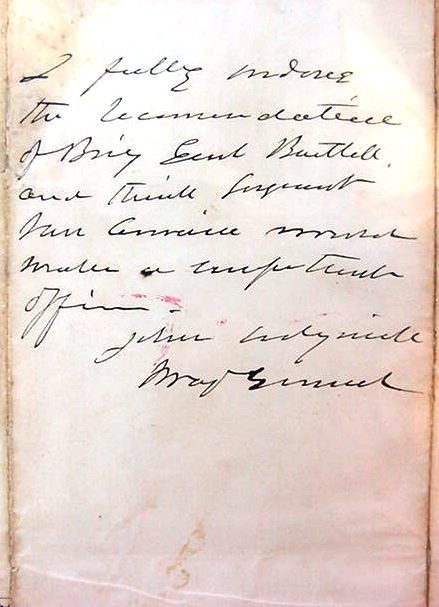 I fully indorse
the recommendation
of Brig Genl Bartlett,
and think Sergeant
Van would
make a competent
officer.
John Sedgwick
Maj General